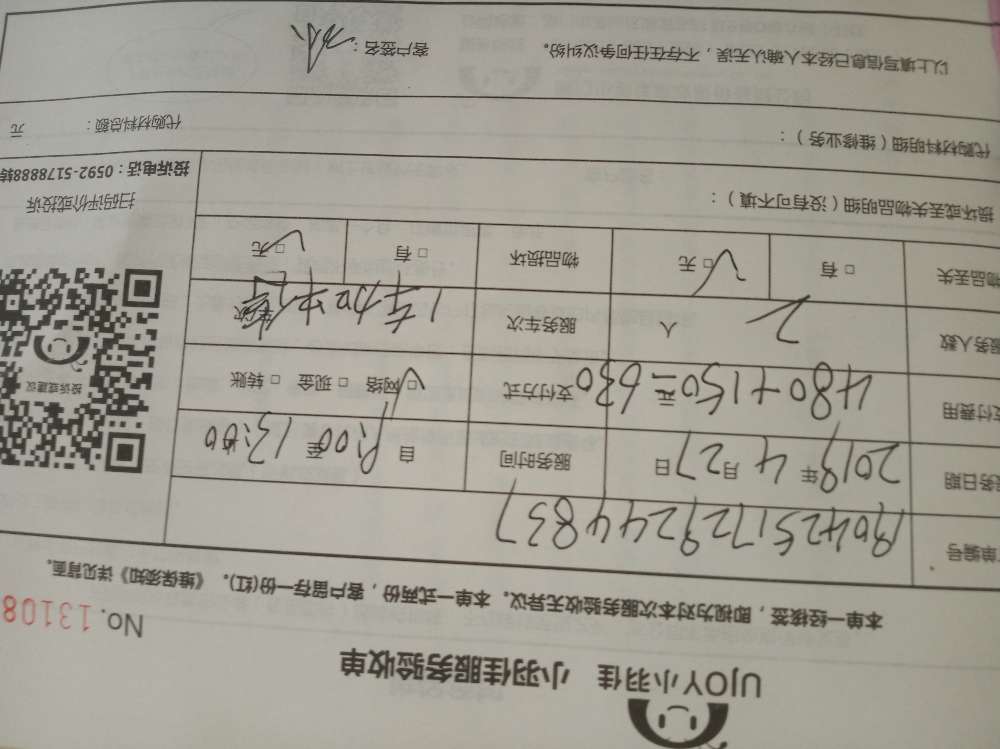 UJOY小羽佳 小羽佳服务验收单
No. 13108
本单一经接签，即视为对本次服务验收无异议。本单一式两份，客户留存一份(红)。《维保须知》详见背面。
单编号 1904251729244837
务日期 2019年4月27日 服务时间 自 8:00至13:00
支付费用 480+150元=630 支付方式 □网络 □现金 □转账
服务人数 2 人 服务车次 1车加中 车次
物品丢失 □有 □无 物品损坏 □有 □无
投诉或建议
扫码评价或投诉
投诉电话：0592-5178888转
损坏或丢失物品明细（没有可不填）：
代购材料明细（维修业务）： 代购材料总额： 元
以上填写信息已经本人确认无误，不存在任何争议纠纷。 客户签名：